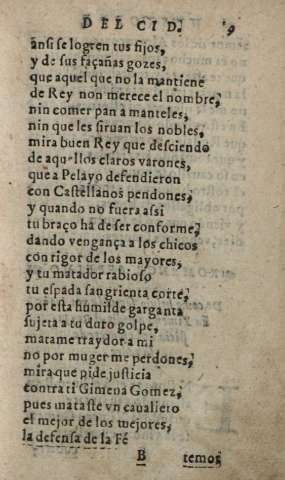 DEL CID. 9
ansi se logren tus fijos,
y de sus façañas gozes,
que aquel que no la mantiene
de Rey non merece el nombre,
nin comer pan a manteles,
nin que les siruan los nobles,
mira buen Rey que desciendo
de aquellos claros varones,
que a Pelayo defendieron
con Castellanos pendones,
y quando no fuera assi
tu braço ha de ser conforme,
dando vengança a los chicos
con rigor de los mayores,
y tu matador rabioso
tu espada sangrienta corte,
por esta humilde garganta
sujeta a tu duro golpe,
matame traydor a mi
no por muger me perdones,
mira que pide justicia
contra ti Gimena Gomez,
pues mataste vn cauallero
el mejor de los mejores,
la defensa de la Fé
B temos